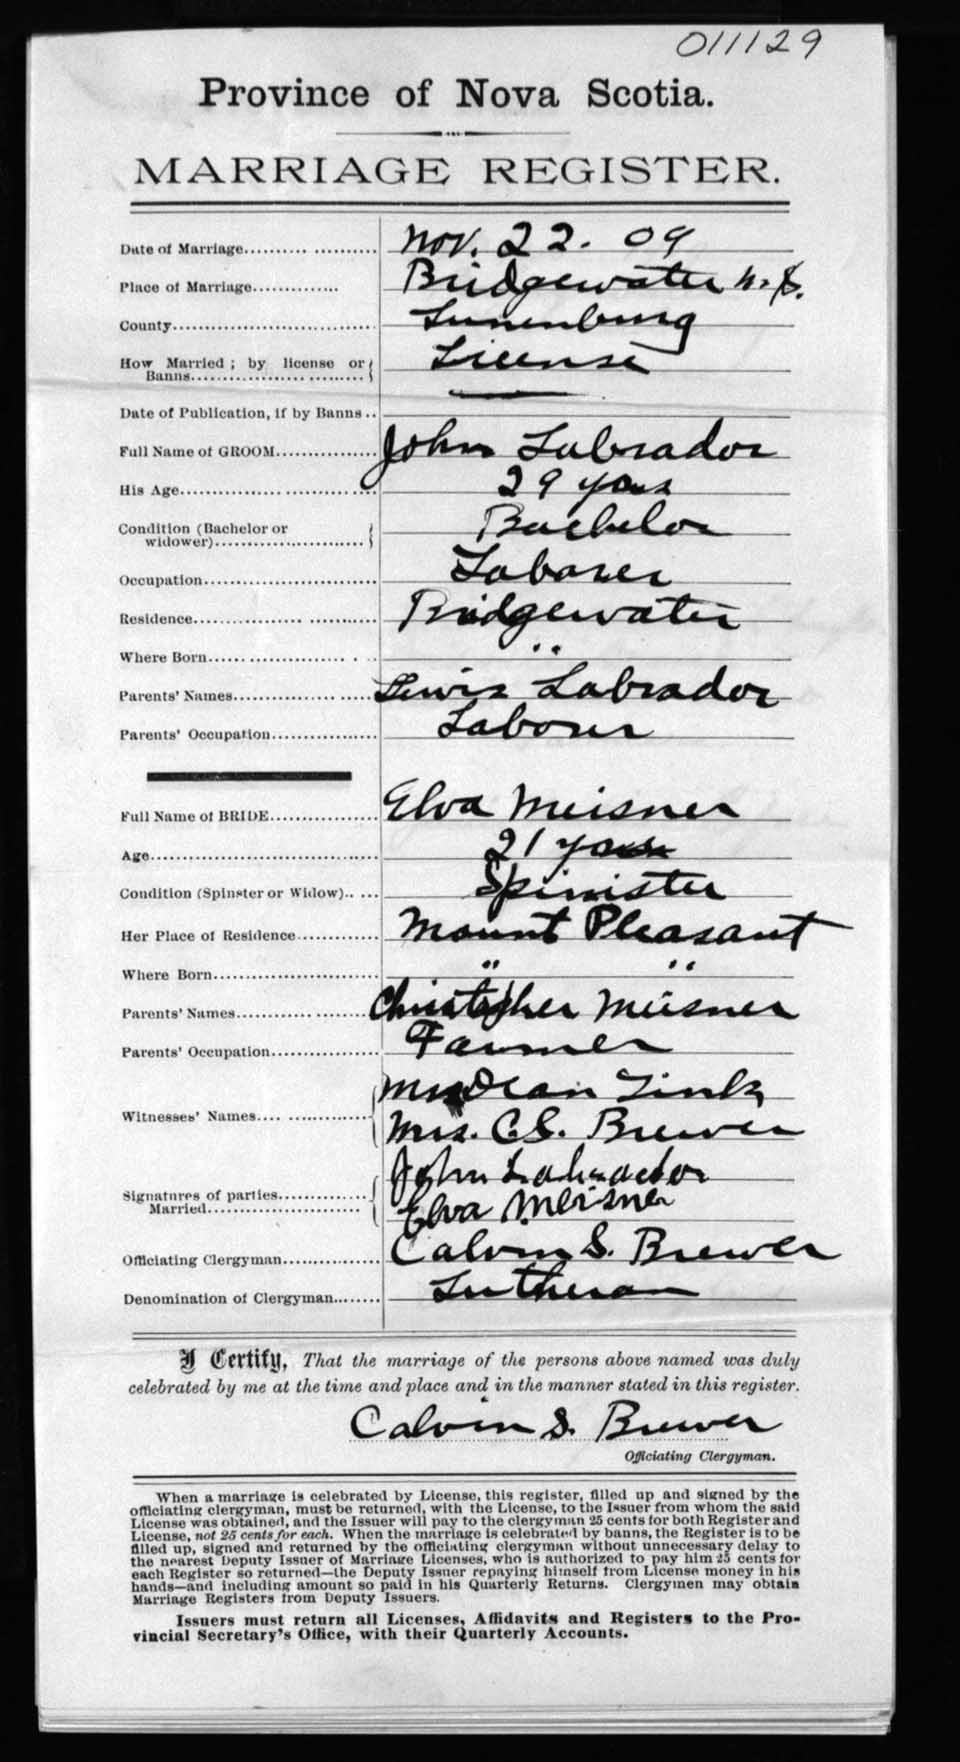 011129
Province of Nova Scotia.
MARRIAGE REGISTER.
Date of Marriage Nov. 22. 09
Place of Marriage Bridgewater N.S.
County Lunenburg
How Married; by license or Banns License
Date of Publication, if by Banns —
Full Name of GROOM John Labrador
His Age 29 years
Condition (Bachelor or widower) Bachelor
Occupation Laborer
Residence Bridgewater
Where Born "
Parents' Names Lewis Labrador
Parents' Occupation Laborer
Full Name of BRIDE Elva Meisner
Age 21 years
Condition (Spinster or Widow) Spinister
Her Place of Residence Mount Pleasant
Where Born " "
Parents' Names Christopher Meisner
Parents' Occupation Farmer
Witnesses' Names Mrs Dean Zink
Mrs. C.S. Brewer
Signatures of parties Married John Labrador
Elva Meisner
Officiating Clergyman Calvin S. Brewer
Denomination of Clergyman Lutheran
I Certify, That the marriage of the persons above named was duly
celebrated by me at the time and place and in the manner stated in this register.
Calvin S. Brewer
Officiating Clergyman.
When a marriage is celebrated by License, this register, filled up and signed by the
officiating clergyman, must be returned, with the License, to the Issuer from whom the said
License was obtained, and the Issuer will pay to the clergyman 25 cents for both Register and
License, not 25 cents for each. When the marriage is celebrated by banns, the Register is to be
filled up, signed and returned by the officiating clergyman without unnecessary delay to
the nearest Deputy Issuer of Marriage Licenses, who is authorized to pay him 25 cents for
each Register so returned—the Deputy Issuer repaying himself from License money in his
hands—and including amount so paid in his Quarterly Returns. Clergymen may obtain
Marriage Registers from Deputy Issuers.
Issuers must return all Licenses, Affidavits and Registers to the Pro-
vincial Secretary's Office, with their Quarterly Accounts.